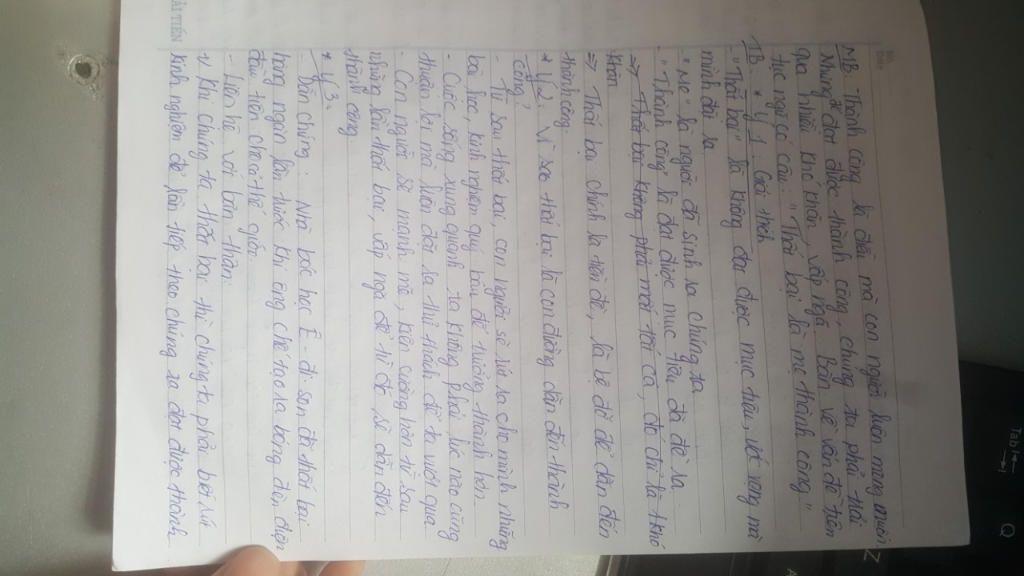 MB. Thành công là điều mà con người luôn mong muốn
Nhưng để đạt được thành công, chúng ta phải trải
qua nhiều khó khăn, vấp ngã. Bàn về vấn đề trên
tục ngữ có câu: "Thất bại là mẹ thành công"
TB. * Ý 1. Giải thích
- "Thất bại" là không đạt được mục tiêu, ước vọng mà
mình đặt ra
- "Mẹ" là người đã sinh ra chúng ta
- "Thành công" là đạt được mục tiêu đã đề ra
=> Thất bại không phải mất tất cả, đó chỉ là khó
khăn
=> Thất bại chính là tiền đề, là bệ đỡ để dẫn đến
thành công
* Ý 2. Vì sao thất bại là con đường dẫn đến thành
công?
- Từ sau thất bại, con người sẽ rút ra cho mình những
bài học, kinh nghiệm quý báu để trưởng thành hơn
- Cuộc sống xung quanh ta không phải lúc nào cũng
thuận lợi mà luôn đặt ra thử thách để ta vượt qua
- Con người sẽ mạnh mẽ, kiên cường hơn từ sau
những lần thất bại, vấp ngã để từ đó sẽ dẫn đến
thành công
* Ý 3.
- Dẫn chứng: Nhà bác học Ê-đi-sơn đã thất bại
hàng ngàn lần trước khi ông chế tạo ra bóng đèn điện
đầu tiên cho cả thế giới
- Liên hệ với bản thân:
+ Khi chúng ta thất bại thì chúng ta phải biết rút
kinh nghiệm để lần tiếp theo chúng ta đạt được thành
Tab
Q
Z
A